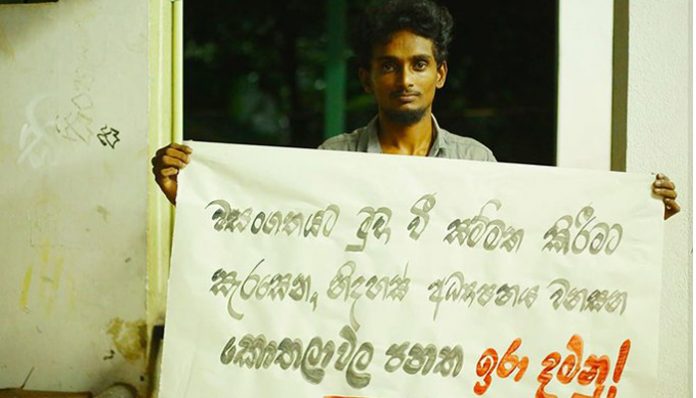 වසංගතයට මුහු වී සම්මත කිරීමට
සැරසෙන, නිදහස් අධ්‍යාපනය වනසන
කොතලාවල පනත ඉරා දමනු!